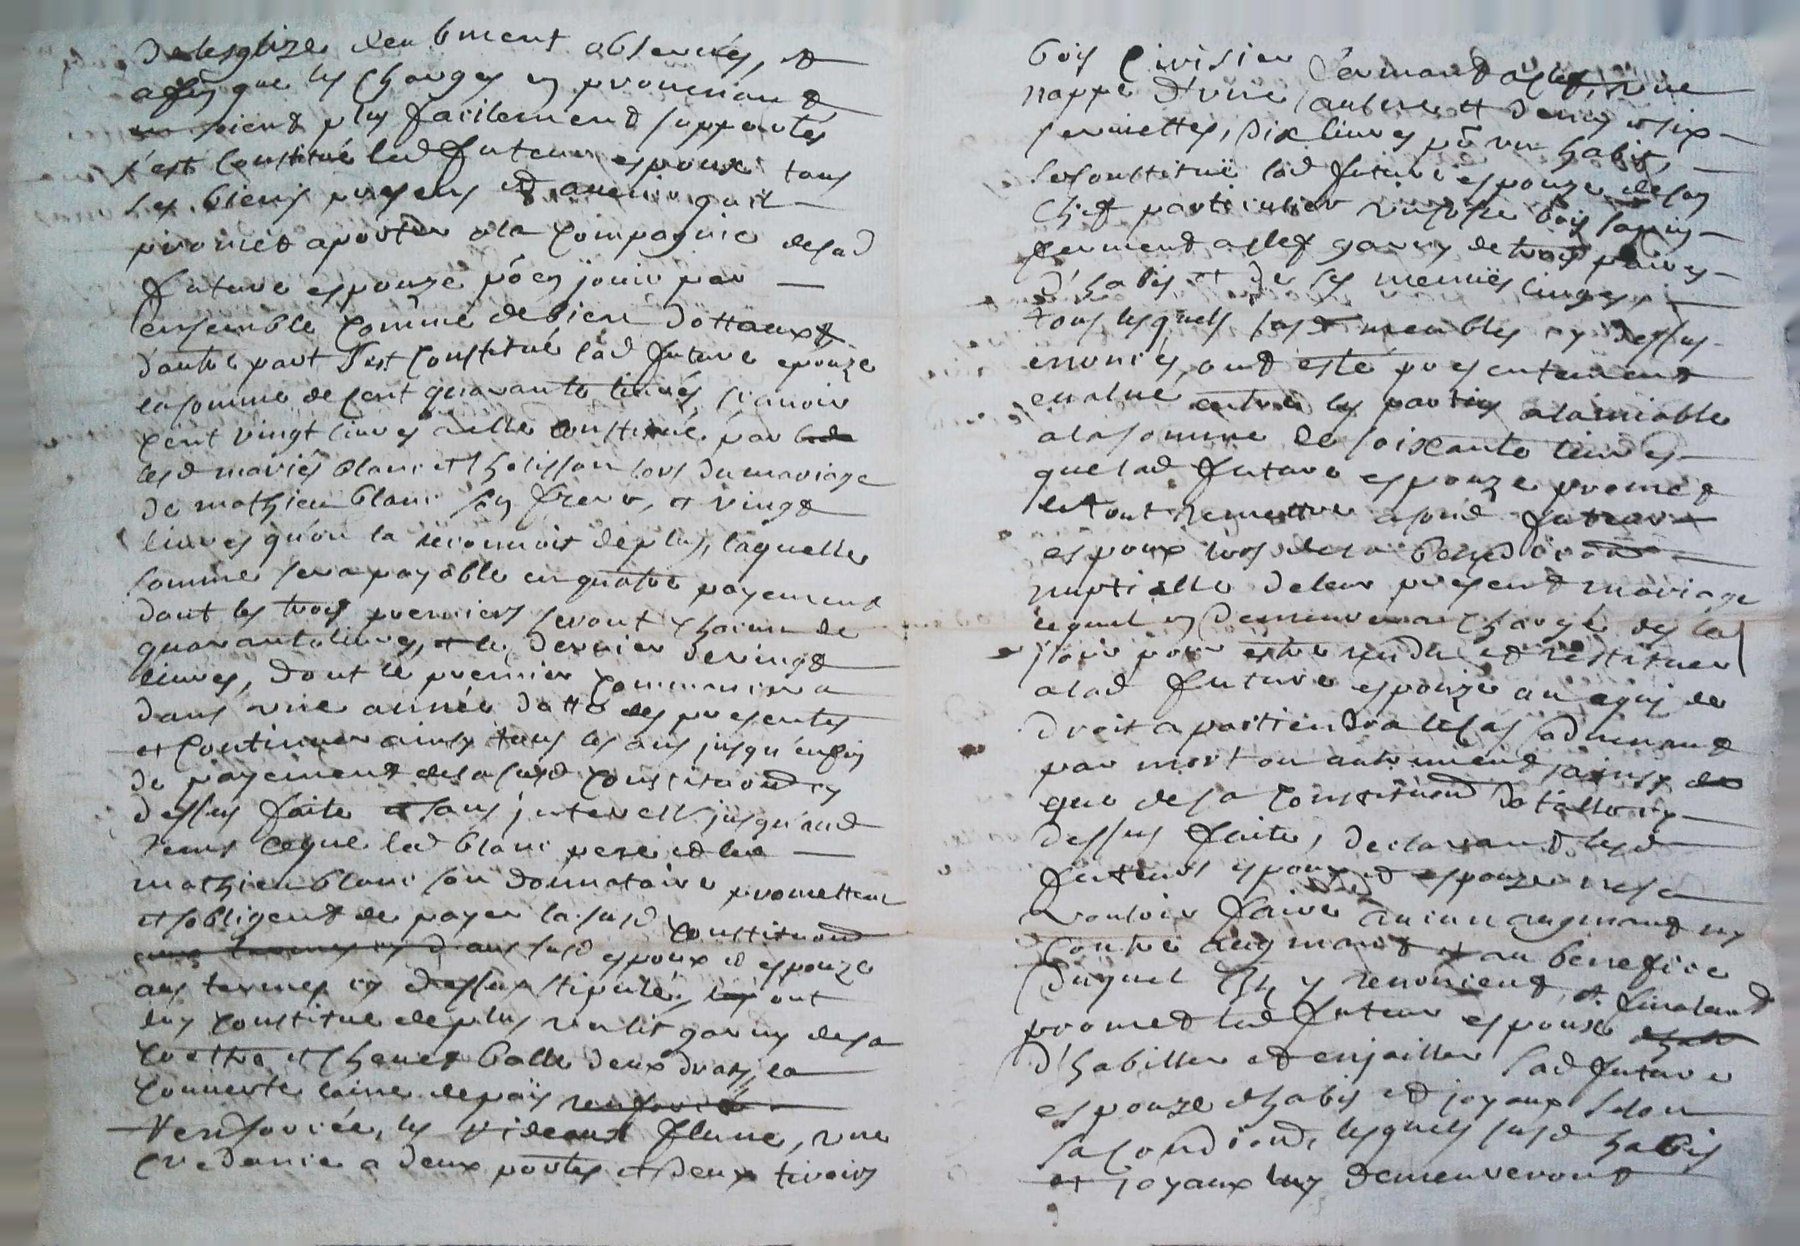 de lesglize deubment observées, et
affin que les charges en provenant
soient plus facilement supportés
s'est constitué led futeur espoux tous
ses biens presens et avenir qu'il
promet aporter a la compagnie de sad
future espouze pō en jouir par
ensemble comme de bien dottaux et
d'autre part s'est constitué lad future epouze
la somme de cent quarante livres scavoir
cent vingt livres a elle constitué par
lesd mariés blanc et lors du mariage
de mathieu blanc son frere, et vingt
livres qu'on la reconnoit de plus, laquelle
somme sera payable en quatre payement
dont les trois premiers seront chacun de
quarante livres, et le dernier de vingt
livres, dont le premier commancera
dans une année datte des presentes
et continuer ainsy tous les ans jusqu'enfin
de payement de la susd constituōn cy
dessus faite et sans jnterest jusqu'aud
tems ce que led blanc pere et led
mathieu blanc son donnataire promettent
et s'obligent de payer la susd constituōn
aus susd espoux et espouze
aux termes cy dessus stipulés, ont
luy constitué de plus un lit garny de sa
coettre et chevet balle deux draps, la
couverte laine de païs
renforcée, les rideaux filune, une
credance a deux portes et deux tiroirs
bois cirisier fermant a clef, une
nappe d'une aulne et demy et six
serviettes, dix livres pō un habit,
se constitue lad future espouze de son
chef particulier un coffre bois sapin
fermant a clef garny de trois paires
d'habis et de ses menues linges,
tous lesquels susd meubles cy dessus
enoncés, ont esté presentement
evalué entre les parties a lamiable
a la somme de soixante livres
que lad future espouze promet
le tout remettre a sond futeur
espoux lors de la benediōn
nuptialle de leur present mariage
lequel en demeurera chargé des la
jcy pour estre rendu et restituer
a lad future espouze au a qui de
droit apartiendra le cas advenant
par mort ou autrement jainsy
que de sa constituōn dotalle cy
dessus faite, declarant lesd
futeurs espoux et espouze ne se
vouloir faire aucun augmant ny
contre augmant au benefice
duquel ils y renoncent, et finalemt
promet led futeur espoux
d'habiller et enjailler lad future
espouze d'habis et joyaux selon
sa condiōn, lesquels susd habis
et joyaux luy demeureront